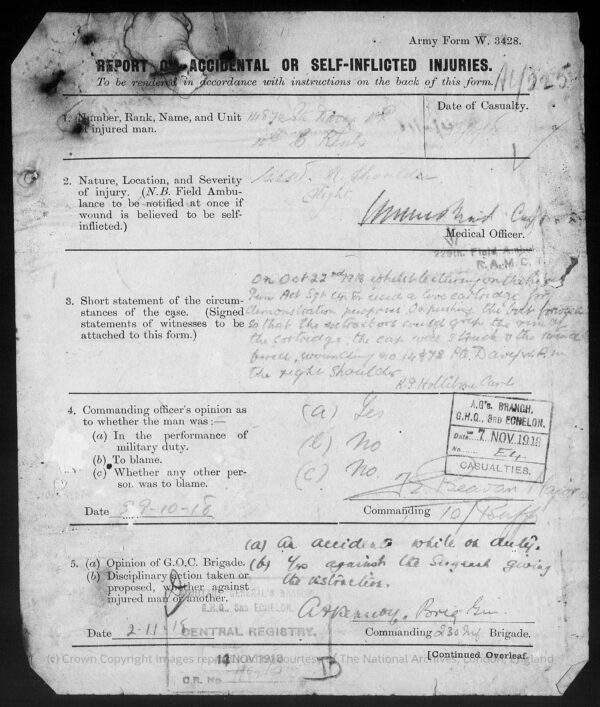 Army Form W. 3428.
REPORT ON ACCIDENTAL OR SELF-INFLICTED INJURIES.
To be rendered in accordance with instructions on the back of this form.
1. Number, Rank, Name, and Unit of injured man.
Date of Casualty.
2. Nature, Location, and Severity
of injury. (N.B. Field Ambu-
lance to be notified at once if
wound is believed to be self-
inflicted.)
R. Shoulder
Slight
Capt
Medical Officer.
229th. Field Ambul
R.A.M.C.
3. Short statement of the circum-
stances of the case. (Signed
statements of witnesses to be
attached to this form.)
On Oct 22nd 1918 whilst lecturing on the
Act Sgt used a live cartridge for
demonstration purposes On pushing the bolt forward
so that the extractors could grip the rim of
the cartridge, the cap was struck & the round
fired, wounding no. Pte in
the right shoulder
4. Commanding officer's opinion as
to whether the man was :—
(a) In the performance of
military duty.
(b) To blame.
(c) Whether any other per-
son was to blame.
(a) Yes
(b) No
(c) No
A.G's. BRANCH.
G.H.Q., 3RD ECHELON.
Date 7 NOV. 1918
No.
CASUALTIES.
Beavan Major
Date 29-10-18
Commanding 10/Buffs
5. (a) Opinion of G.O.C. Brigade.
(b) Disciplinary action taken or
proposed, whether against
injured man or another.
(a) An accident while on duty.
(b) against the Sergeant giving
the instruction.
GENERAL'S BRANCH
G.H.Q., 3RD ECHELON.
CENTRAL REGISTRY.
NOV 1918
C.R. No
Brig Gen
Date 2-11-18
Commanding 230 Inf Brigade.
[Continued Overleaf.
(c) Crown Copyright Images reproduced courtesy of The National Archives, London, England